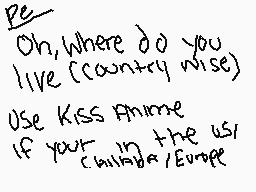 Pe
Oh, Where do you
live (country wise)
Use Kiss Anime
if your in the us,
Canada, Europe